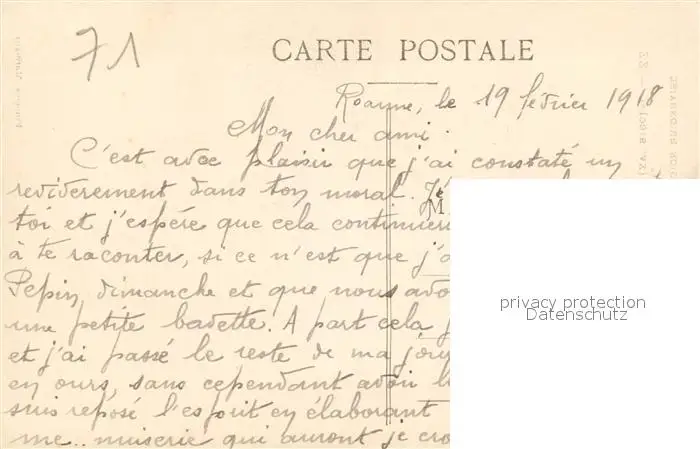 71
CARTE POSTALE
Roanne, le 19 février 1918
Mon cher ami.
C'est avec plaisir que j'ai constaté un
revirement dans ton moral. Je
M
toi et j'espère que cela continuer
à te raconter, si ce n'est que j'a
Pepin, dimanche et que nous avo
une petite badette. A part cela
et j'ai passé le reste de ma jour
en ours, sans cependant avoir l
suis reposé l'esprit en élaborant
me.. nuiserie qui auront je cro
privacy protection
Datenschutz